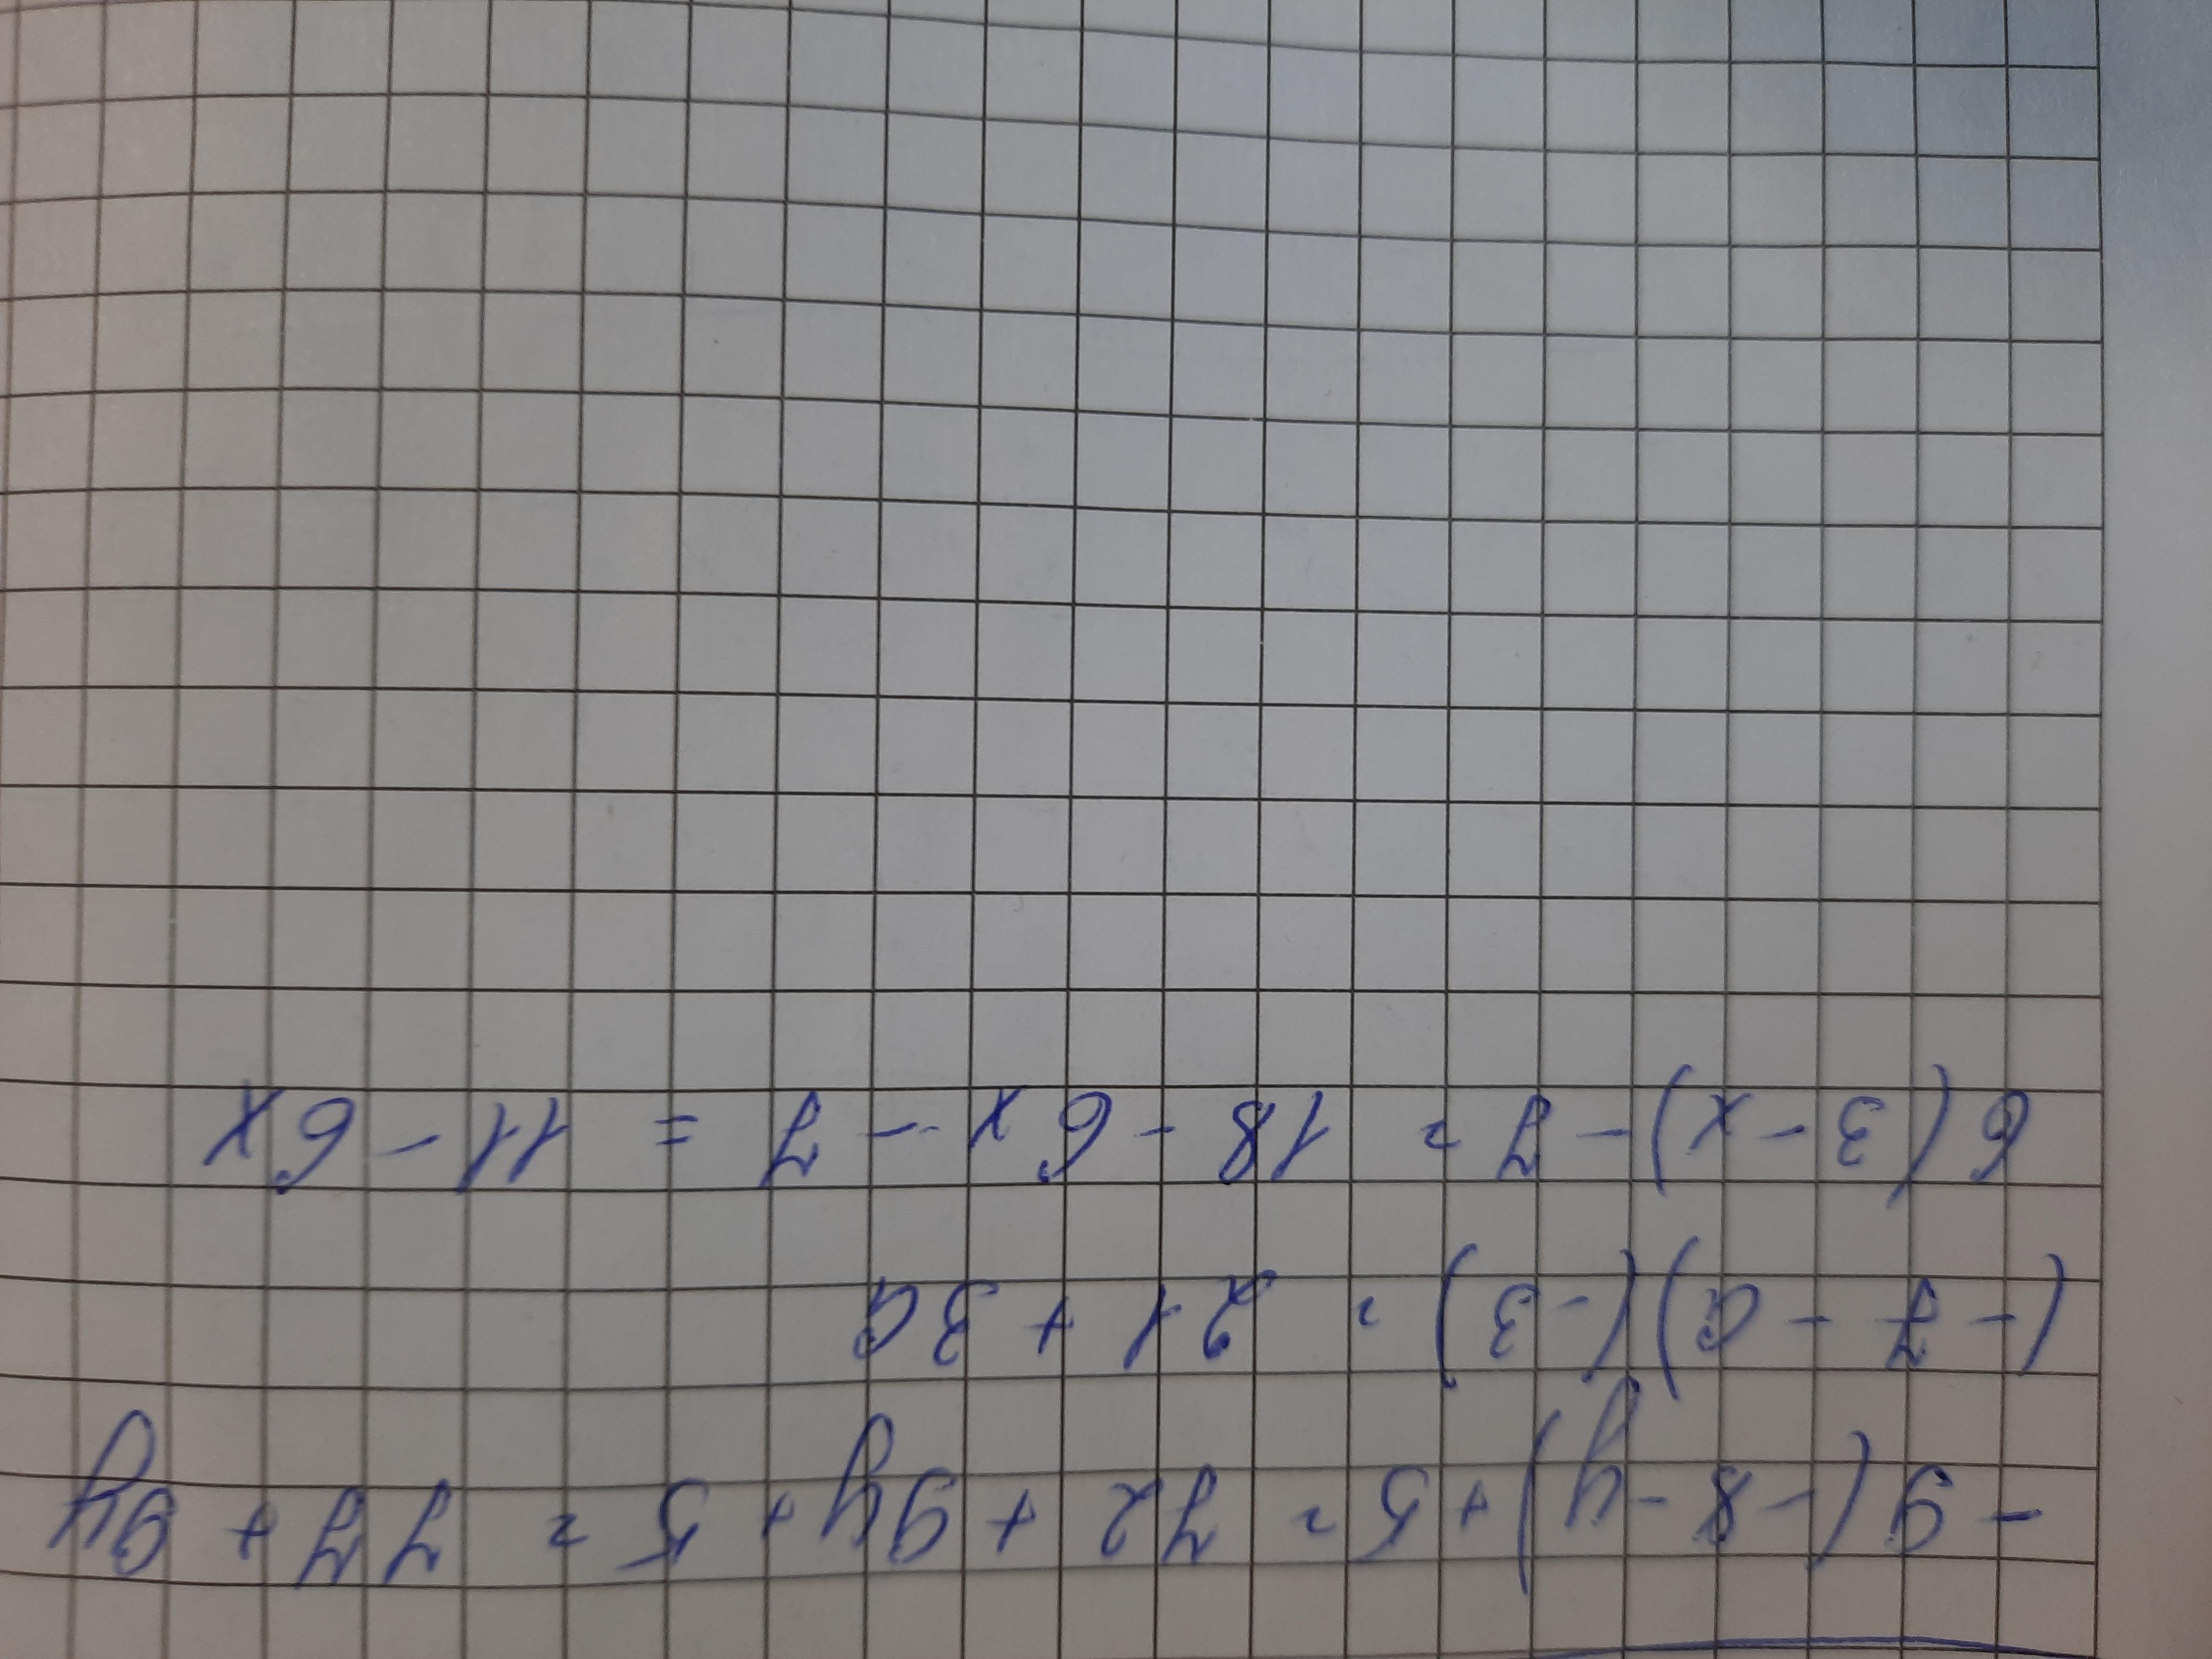 -9(-8-y)+5=72+9y+5=77+9y
(-7-a)(-3)=21+3a
6(3-x)-7=18-6x-7=11-6x